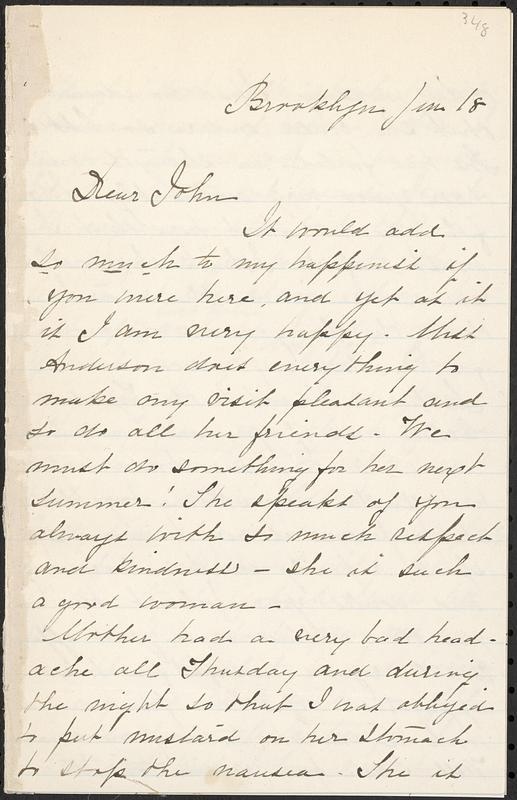 348
Brooklyn Jan 18
Dear John
It would add
so much to my happiness if
you were here, and yet as it
is I am very happy. Miss
Anderson does everything to
make my visit pleasant and
so do all her friends - We
must do something for her next
summer! She speaks of you
always with so much respect
and kindness - she is such
a good woman -
Mother had a very bad head-
ache all Thursday and during
the night so that I was obliged
to put mustard on her stomach
to stop the nausea. She is